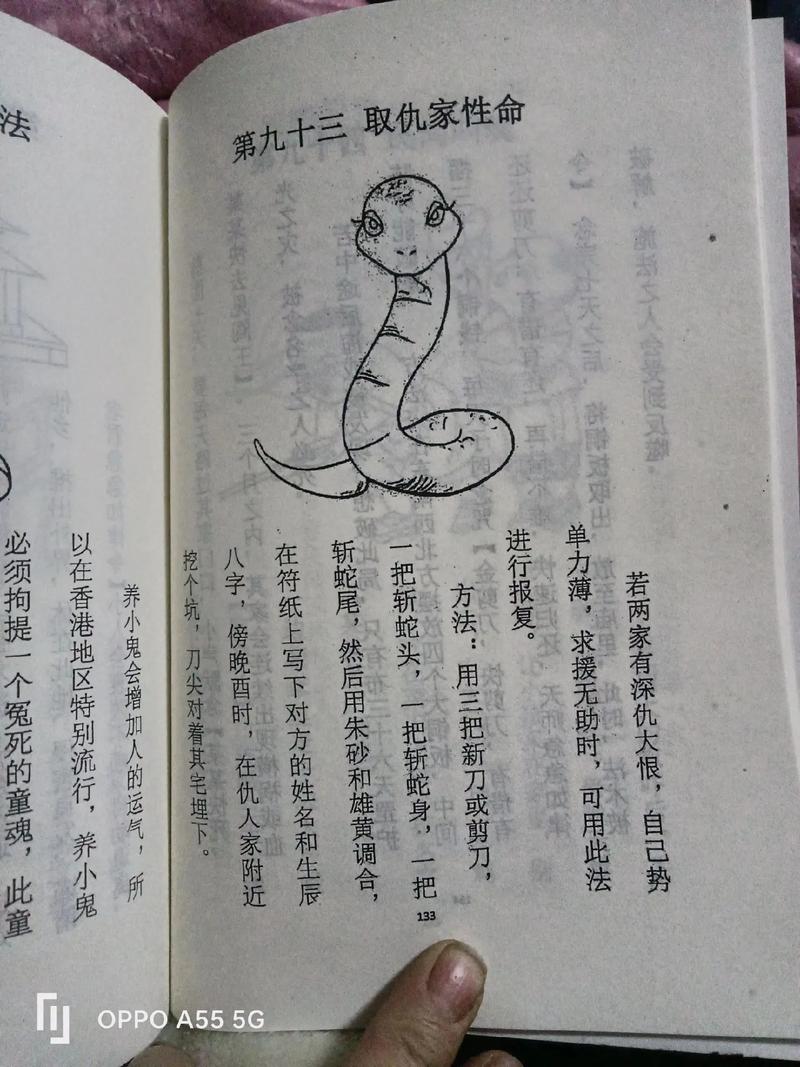 第九十三 取仇家性命
若两家有深仇大恨，自己势
单力薄，求援无助时，可用此法
进行报复。
方法：用三把新刀或剪刀，
一把斩蛇头，一把斩蛇身，一把
斩蛇尾，然后用朱砂和雄黄调合，
在符纸上写下对方的姓名和生辰
八字，傍晚酉时，在仇人家附近
挖个坑，刀尖对着其宅埋下。
133
法
养小鬼会增加人的运气，所
以在香港地区特别流行，养小鬼
必须拘提一个冤死的童魂，此童
OPPO A55 5G